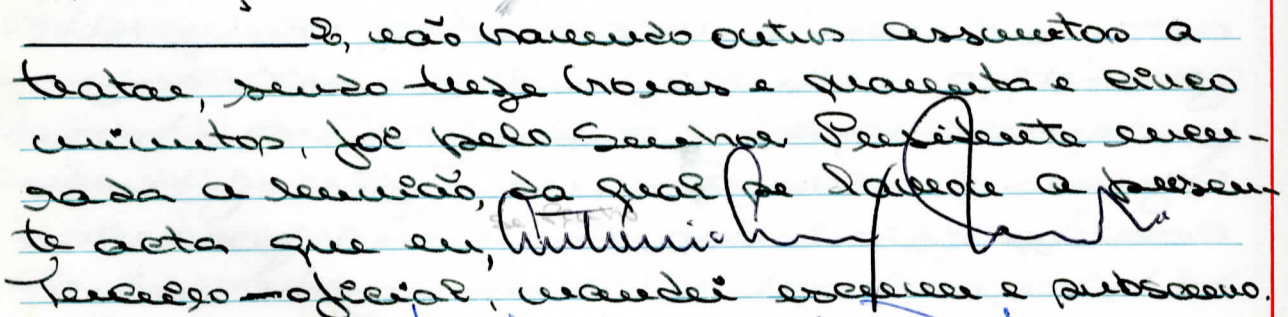 E, não havendo outros assuntos a
tratar, sendo treze horas e quarenta e cinco
minutos, foi pelo Senhor Presidente encer-
rada a reunião, da qual se lavrou a presen-
te acta que eu, António
terceiro-oficial, mandei escrever e subscrevo.